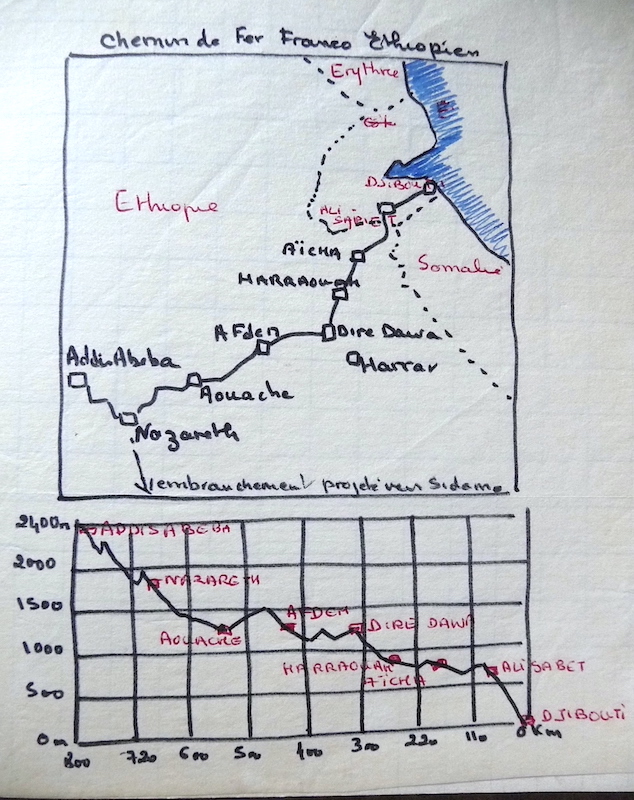 Chemin de Fer Franco Ethiopien
Erythrée
Ethiopie
DJIBOUTI
ALI
SABIET
AÏCHA
Somalie
HARRAOUAH
AFden
Dire Dawa
Harrar
Addis Abeba
Aouache
Nazareth
embranchement projeté vers Sidamo
2400m
ADDIS ABEBA
2000
NAZARETH
1500
AFDEM
DIRE DAWA
AOUACHE
1000
HARRAOUAH
AÏCHA
ALI SABET
500
DJIBOUTI
0m
800 720 600 500 400 300 220 110 0 Km